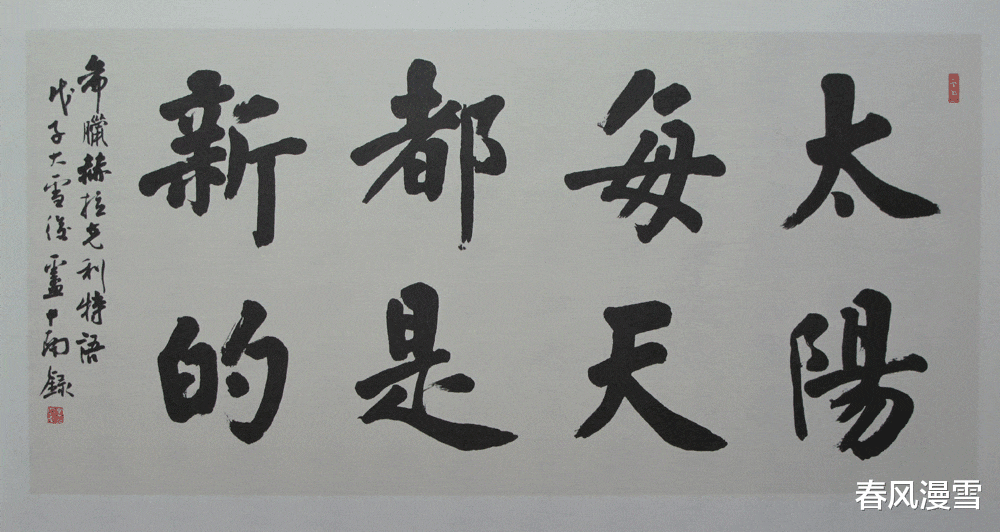 太陽
每天
都是
新的
希臘赫拉克利特語
戊子大雪後盧中南錄
春风漫雪